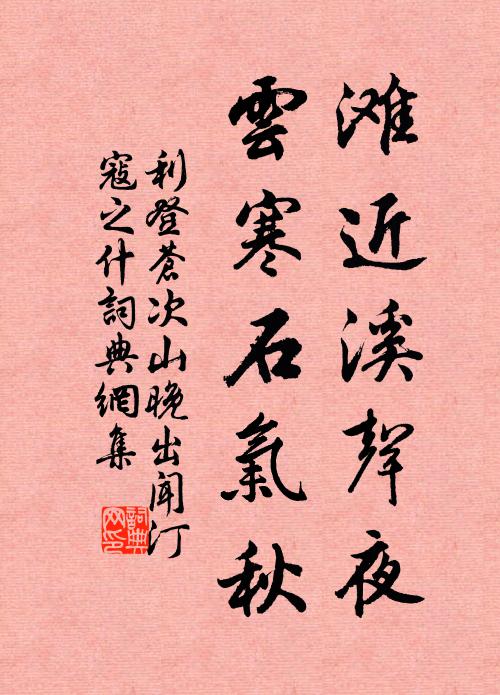 滩近溪聲夜
雲寒石氣秋
利登蒼次山晚出闻汀
寇之什詞典網集
詞典网印